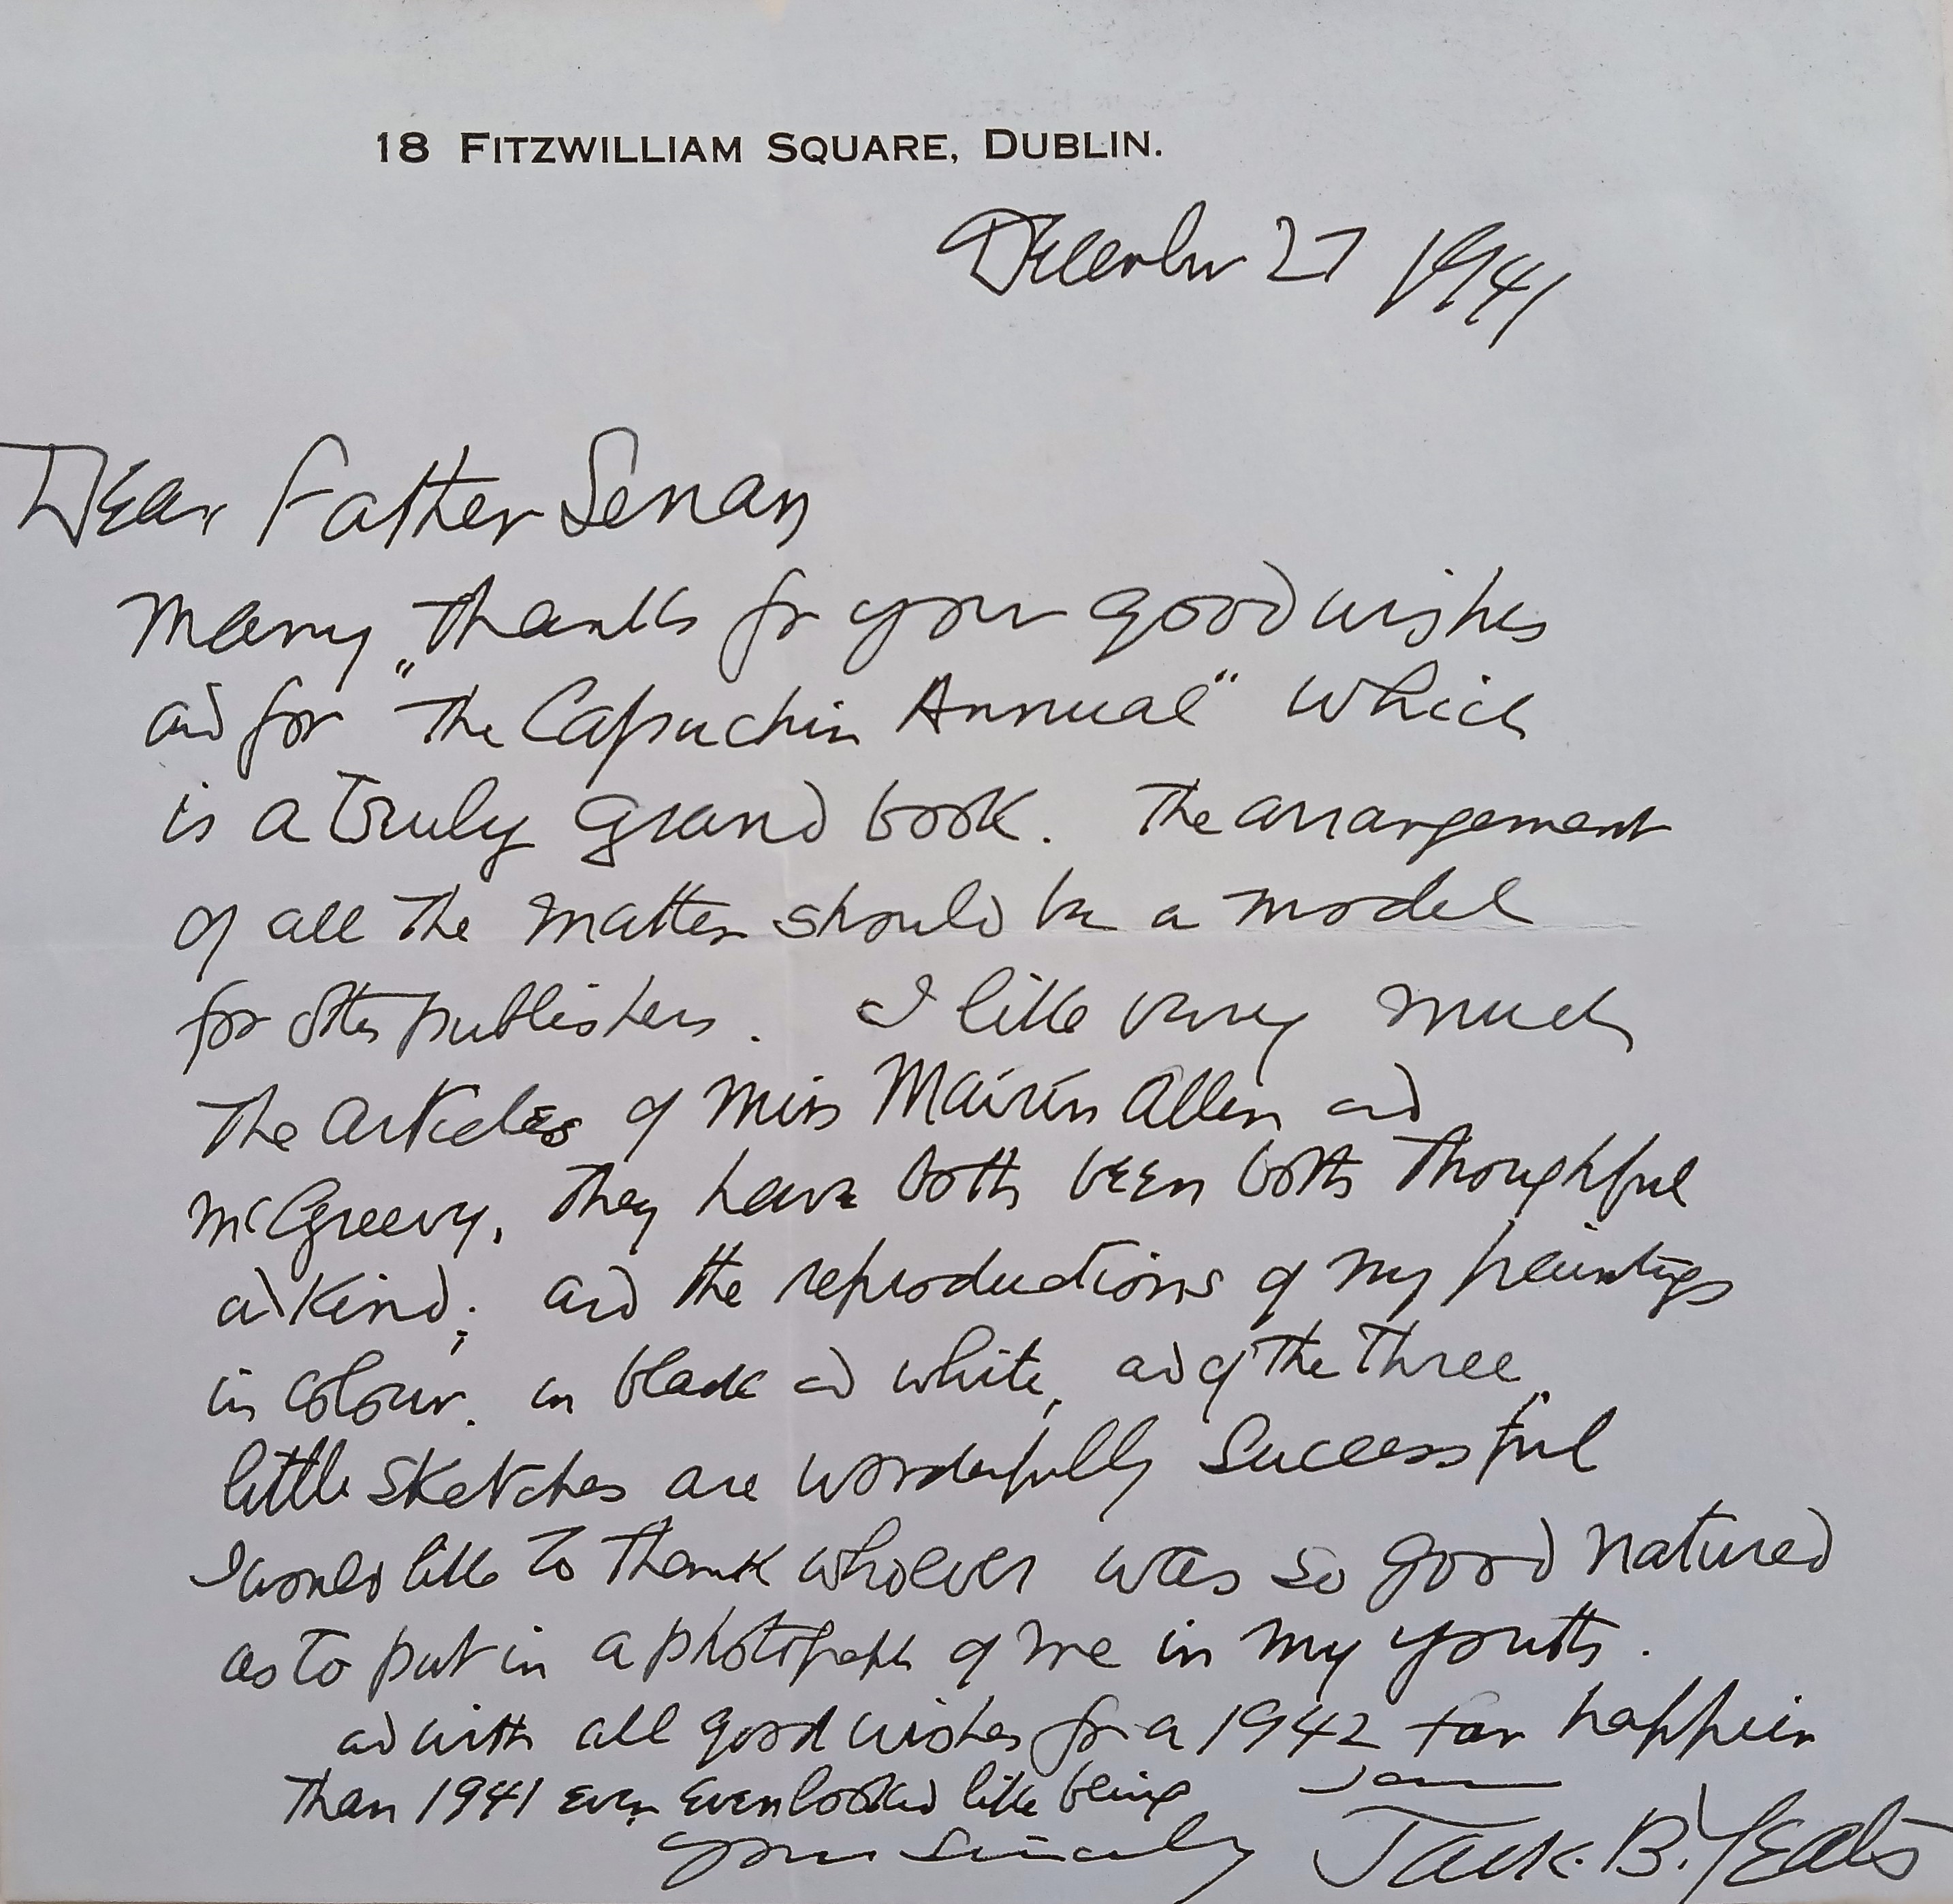 18 FITZWILLIAM SQUARE, DUBLIN.
December 27 1941
Dear Father Senan
Many thanks for your good wishes
and for "The Capuchin Annual" which
is a truly grand book. The arrangement
of all the matter should be a model
for other publishers. I like very much
the articles of Miss Máirín Allen and
McGreevy, they have both been both thoughtful
and kind; and the reproductions of my paintings
in colour, in black and white, and of the three
little sketches are wonderfully successful
I would like to thank whoever was so good natured
as to put in a photograph of me in my youth.
and with all good wishes for a 1942 far happier
than 1941 ever even looked like being
I am
yours sincerely Jack B. Yeats